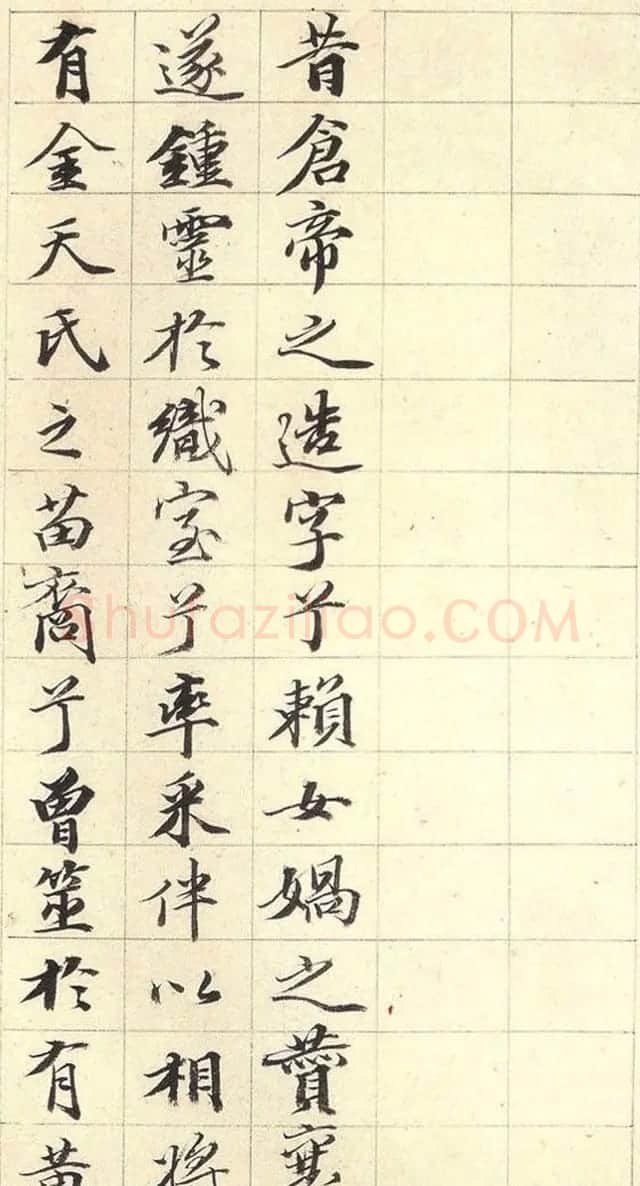 昔倉帝之造字兮賴女媧之贊襄
遂鍾靈於織室兮率采伴以相將
有金天氏之苗裔兮曾筮於有黃
shufaziliao.COM